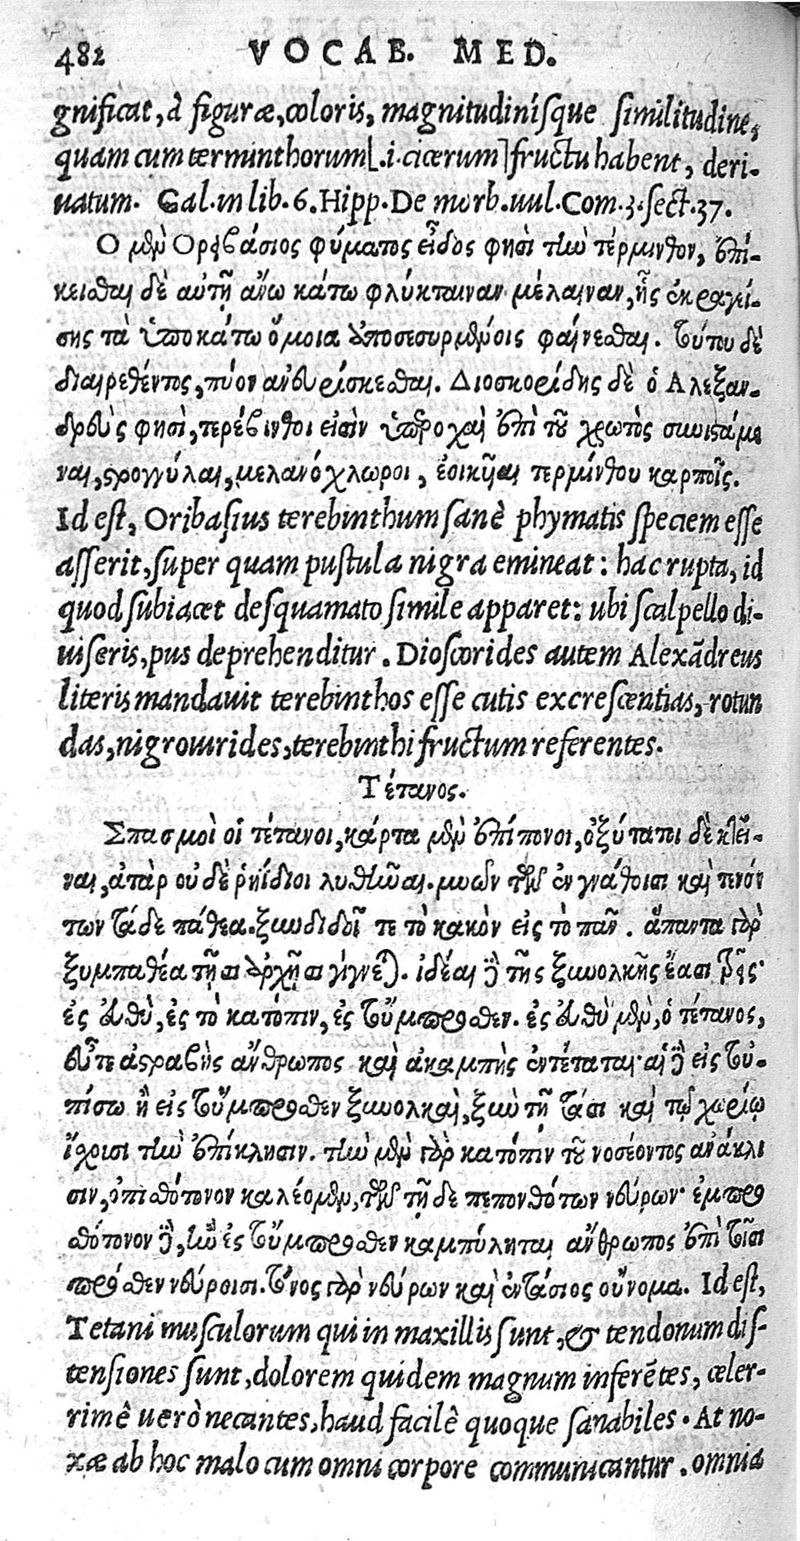 482 VOCAB. MED.
gnificat, à figuræ, coloris, magnitudinísque similitudine,
quam cum terminthorum[.i. cicerum] fructu habent, deri-
uatum. Gal. in lib. 6. Hipp. De morb. uul. Com. 3. sect. 37.
Ο μὲν Ορειβάσιος φύματος εἶδος φησὶ τὴν τέρμινθον, ἐπι-
κεῖσθαι δὲ αὐτῇ ἄνω κάτω φλύκταιναν μέλαιναν, ἧς ἐκραγεί-
σης τὰ ὑποκάτω ὅμοια ἀποσεσυρμένοις φαίνεσθαι. τούτου δὲ
διαιρεθέντος, πύον ἀνευρίσκεσθαι. Διοσκορίδης δὲ ὁ Αλεξαν-
δρεὺς φησὶ, τερέβινθοι εἰσὶν ὑπεροχαὶ ἐπὶ τοῦ χρωτὸς συνιστάμε
ναι, στρογγύλαι, μελανόχλωροι, ἐοικυῖαι τερμίνθου καρποῖς.
Id est, Oribasius terebinthum sanè phymatis speciem esse
asserit, super quam pustula nigra emineat: hac rupta, id
quod subiacet desquamato simile apparet: ubi scalpello di-
uiseris, pus deprehenditur. Dioscorides autem Alexãdreus
literis mandauit terebinthos esse cutis excrescentias, rotun
das, nigrouirides, terebinthi fructum referentes.
Τέτανος.
Σπασμοὶ οἱ τέτανοι, κάρτα μὲν ἐπίπονοι, ὀξύτατοι δὲ κτεῖ-
ναι, ἀτὰρ οὐδὲ ῥηΐδιοι λυθῆναι. μυῶν τῶν ἐν γνάθοισι καὶ τενόν
των τάδε πάθεα. ξυνδιδοῖ τε τὸ κακὸν εἰς τὸ πᾶν. ἅπαντα γὰρ
ξυμπαθέα τῇσι ἀρχῇσι γίγνεται. ἰδέαι δὲ τῆς ξυνολκῆς ἔασι τρεῖς·
ἐς εὐθὺ, ἐς τὸ κατόπιν, ἐς τοὔμπροσθεν. ἐς εὐθὺ μὲν, ὁ τέτανος,
εὖτε ἀστραβὴς ἄνθρωπος καὶ ἀκαμπὴς ἐντέταται· αἱ δὲ εἰς τοὐ-
πίσω ἢ εἰς τοὔμπροσθεν ξυνολκαὶ, ξὺν τῇ τάσι καὶ τῷ χωρίῳ
ἴσχουσι τὴν ἐπίκλησιν. τὴν μὲν γὰρ κατόπιν τοῦ νοσέοντος ἀνάκλι
σιν, ὀπισθότονον καλέομεν, τῶν τῇδε πεπονθότων νεύρων· ἐμπροσ
θότονον δὲ, ἢν ἐς τοὔμπροσθεν καμπύληται ἄνθρωπος ἐπὶ τοῖσι
πρόσθεν νεύροισι. τόνος γὰρ νεύρων καὶ ἐντάσιος οὔνομα. Id est,
Tetani musculorum qui in maxillis sunt, & tendonum dis-
tensiones sunt, dolorem quidem magnum inferẽtes, celer-
rimê uerò necantes, haud facilê quoque sanabiles. At no-
xæ ab hoc malo cum omni corpore communicantur. omnia